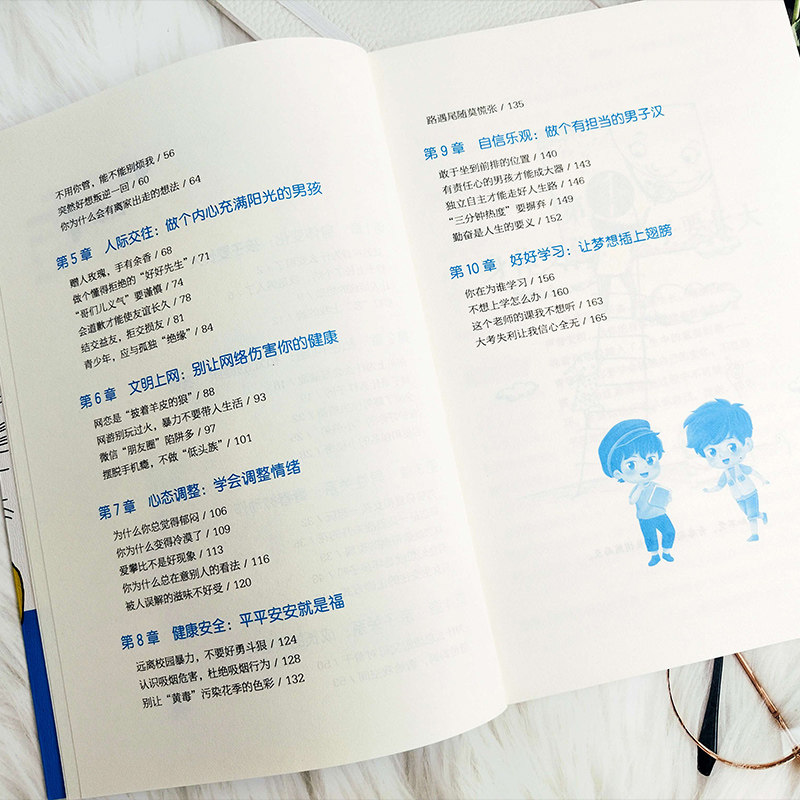 不用你管，能不能别烦我 / 56
突然好想叛逆一回 / 60
你为什么会有离家出走的想法 / 64
第 5 章 人际交往：做个内心充满阳光的男孩
赠人玫瑰，手有余香 / 68
做个懂得拒绝的“好好先生” / 71
“哥们儿义气”要谨慎 / 74
会道歉才能使友谊长久 / 78
结交益友，拒交损友 / 81
青少年，应与孤独“绝缘” / 84
第 6 章 文明上网：别让网络伤害你的健康
网恋是“披着羊皮的狼” / 88
网游别玩过火，暴力不要带入生活 / 93
微信“朋友圈”陷阱多 / 97
摆脱手机瘾，不做“低头族” / 101
第 7 章 心态调整：学会调整情绪
为什么你总觉得郁闷 / 106
你为什么变得冷漠了 / 109
爱攀比不是好现象 / 113
你为什么总在意别人的看法 / 116
被人误解的滋味不好受 / 120
第 8 章 健康安全：平平安安就是福
远离校园暴力，不要好勇斗狠 / 124
认识吸烟危害，杜绝吸烟行为 / 128
别让“黄毒”污染花季的色彩 / 132
路遇尾随莫慌张 / 135
第 9 章 自信乐观：做个有担当的男子汉
敢于坐到前排的位置 / 140
有责任心的男孩才能成大器 / 143
独立自主才能走好人生路 / 146
“三分钟热度”要摒弃 / 149
勤奋是人生的要义 / 152
第 10 章 好好学习：让梦想插上翅膀
你在为谁学习 / 156
不想上学怎么办 / 160
这个老师的课我不想听 / 163
大考失利让我信心全无 / 165